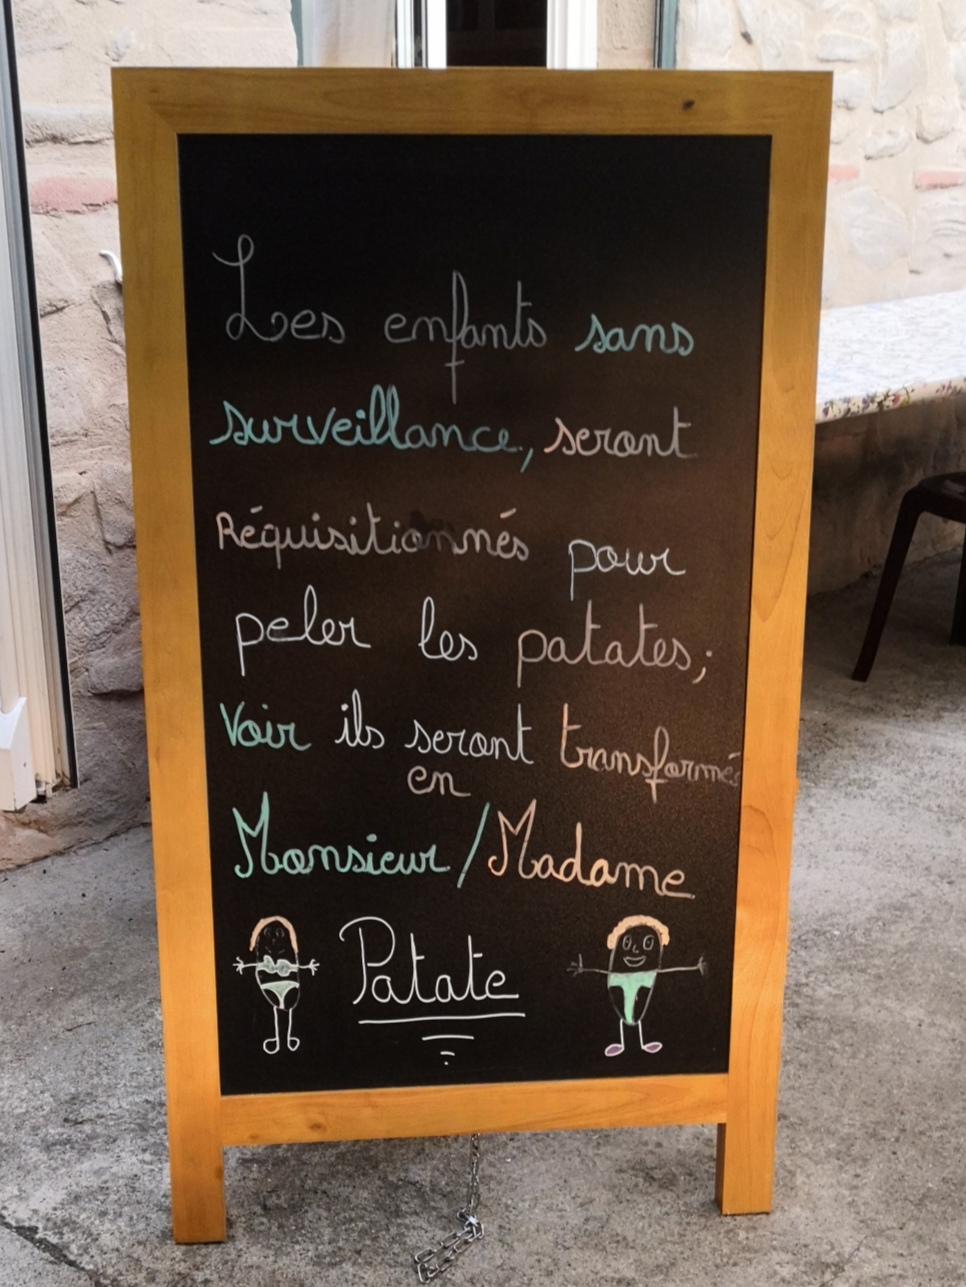 Les enfants sans
surveillance, seront
Réquisitionnés pour
peler les patates;
Voir ils seront transformés
en
Monsieur/Madame
Patate